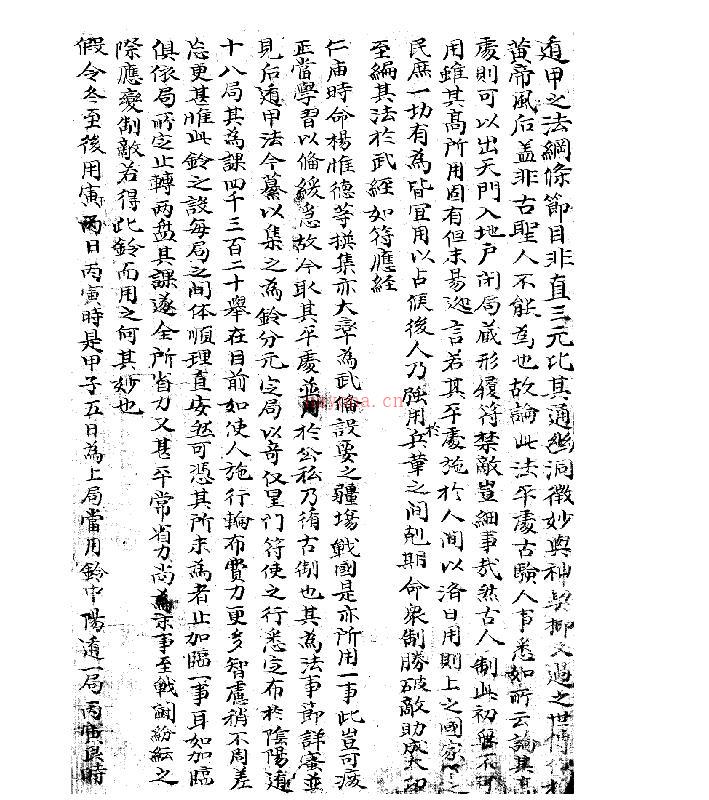 遁甲之法綱條節目非直三元比其通幽洞微妙與神契抑又過之世傳
黄帝風后盖非古聖人不能為也故論此法平處古驗人事悉如所云論其高
處則可以出天門入地户闭局藏形履符禁敵豈細事㦲然古人制此初無不可
用雖其高所用固有但未昜遊言若其平處施於人间以洛日用則上之國家下之
民庶一切有為皆宜用以占候後人乃强用於兵革之间剋期命衆制勝破敵助成大功
至編其法於武經如符應経
仁庙時命楊惟德等撰集亦大率為武俻設要之疆塲戰國是亦所用一事此豈可癈
正當學習以俻緩急故今取其平處並用於公私乃循古制也其為法事節詳審並
見后遁甲法今纂以集之為鈴分元定局以竒仪星门符使之行悉定布於陰陽遁
十八局其為課四千三百二十舉在目前如使人施行輪布費力更多智慮稍不周差
忘更甚惟此鈴之設每局之间体順理直安然可憑其所未為者止加臨一事耳如加臨
俱依局所定止轉两盘其課遂全所省力又甚平常省力尚為末事至戰鬭紛紜之
際應变制敵若得此鈴而用之何其妙也
假令冬至後用寅丙日丙寅時是甲子五日為上局當用鈴中陽遁一局丙寅時